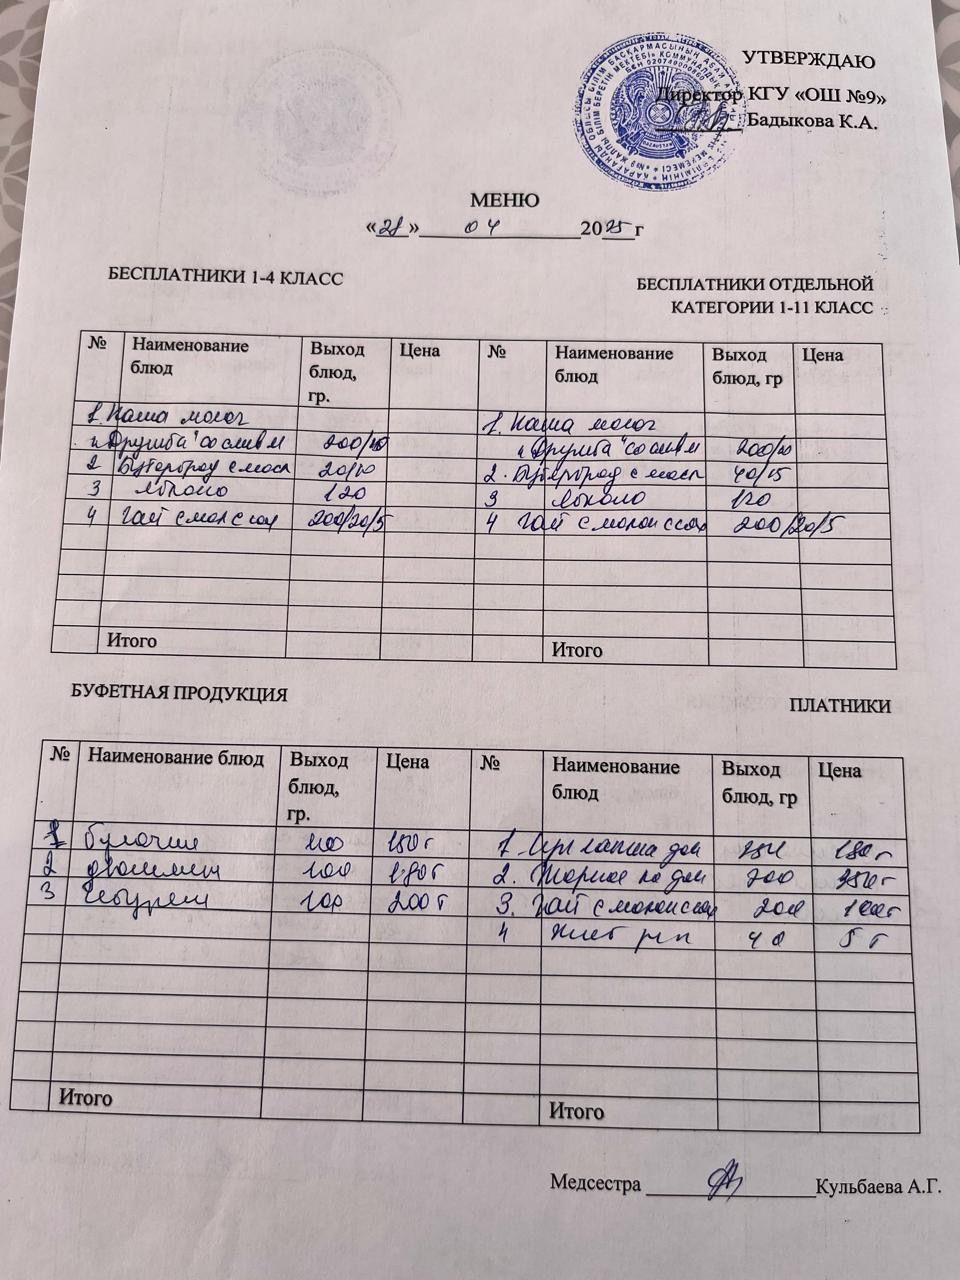 УТВЕРЖДАЮ
Директор КГУ «ОШ №9»
Бадыкова К.А.
МЕНЮ
«28» 04 2025 г
БЕСПЛАТНИКИ 1-4 КЛАСС
БЕСПЛАТНИКИ ОТДЕЛЬНОЙ
КАТЕГОРИИ 1-11 КЛАСС
№ Наименование блюд Выход блюд, гр. Цена № Наименование блюд Выход блюд, гр Цена
1. Каша молоч 1. Каша молоч
"Дружба" со слив м 200/10 "Дружба" со слив м 200/10
2 Бутерброд с масл 20/10 2. Бутерброд с масл 40/15
3 Яблоко 120 3 Яблоко 120
4 Чай с мол с сах 200/20/5 4 Чай с молоком с сах 200/20/5
Итого Итого
БУФЕТНАЯ ПРОДУКЦИЯ
ПЛАТНИКИ
№ Наименование блюд Выход блюд, гр. Цена № Наименование блюд Выход блюд, гр Цена
1 булочки 100 150 т 1. Суп лапша дом 250 180 т
2 100 180 т 2. Жаркое по дом 200 350 т
3 Чебуреки 100 200 т 3. Чай с молоком с сах 200 100 т
4 Хлеб 40 5 т
Итого Итого
Медсестра Кульбаева А.Г.